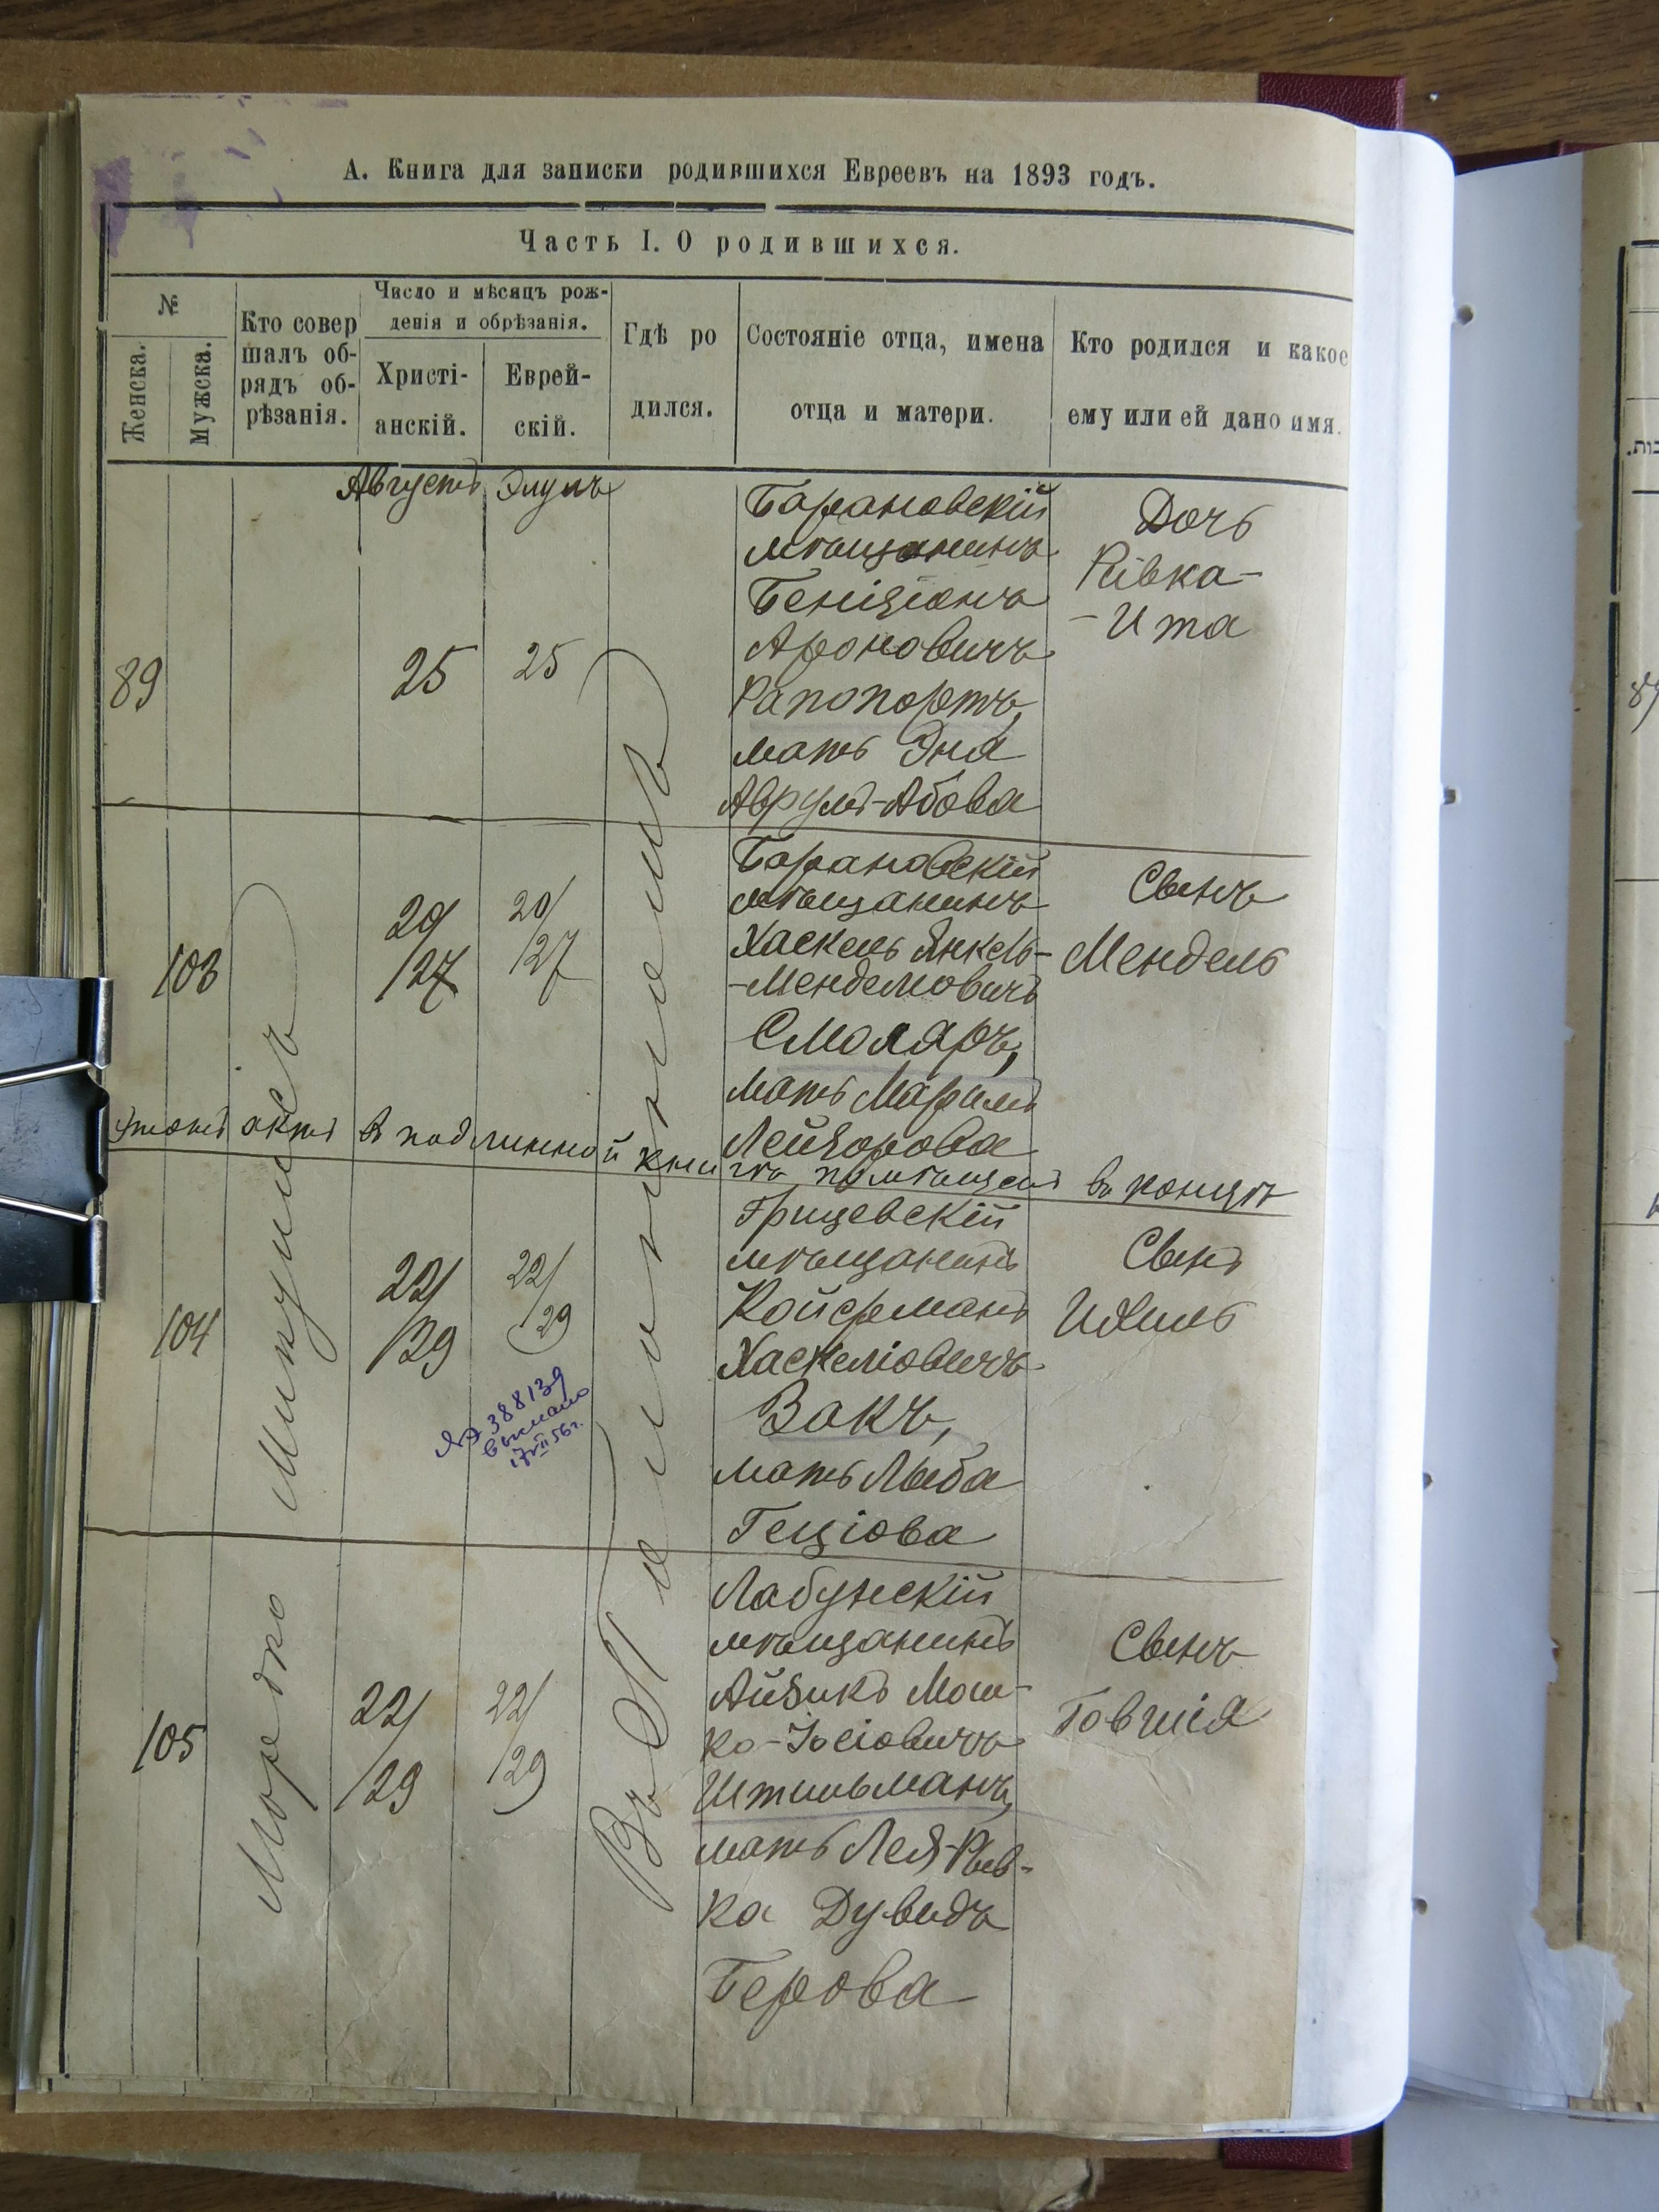 А. Книга для записки родившихся Евреевъ на 1893 годъ.
Часть I. О родившихся.
№
Женска.
Мужска.
Кто совер
шалъ об-
рядъ об-
рѣзанія.
Число и мѣсяцъ рож-
денія и обрѣзанія.
Христі-
анскій.
Еврей-
скій.
Гдѣ ро
дился.
Состояніе отца, имена
отца и матери.
Кто родился и какое
ему или ей дано имя.
Августъ Элулъ
89
25
25
Барановскій
мѣщанинъ
Беніціонъ
Ароновичъ
Рапопортъ,
мать Эня
Аврумъ-Абова
Дочь
Ривка-
-Ита
103
20/
/27
20/
/27
Барановскій
мѣщанинъ
Хаскель Янкель-
-Менделіовичъ
Смоляръ,
мать Маріямъ
Лейзорова
Сынъ
Мендель
Этотъ актъ въ подлинной книгѣ помѣщенъ въ концѣ
104
22/
/29
22/
/29
Грицевскій
мѣщанинъ
Койфманъ
Хаскеліовичъ
Закъ,
мать Лыба
Геціова
Сынъ
Ихиль
388139
17 VII 56 г.
105
22/
/29
22/
/29
Лабунскій
мѣщанинъ
Айзикъ Мош-
ко-Іосіовичъ
Штильманъ,
мать Лея-Рыв-
ка Дувидъ
Берова
Сынъ
Говшія
Мордко